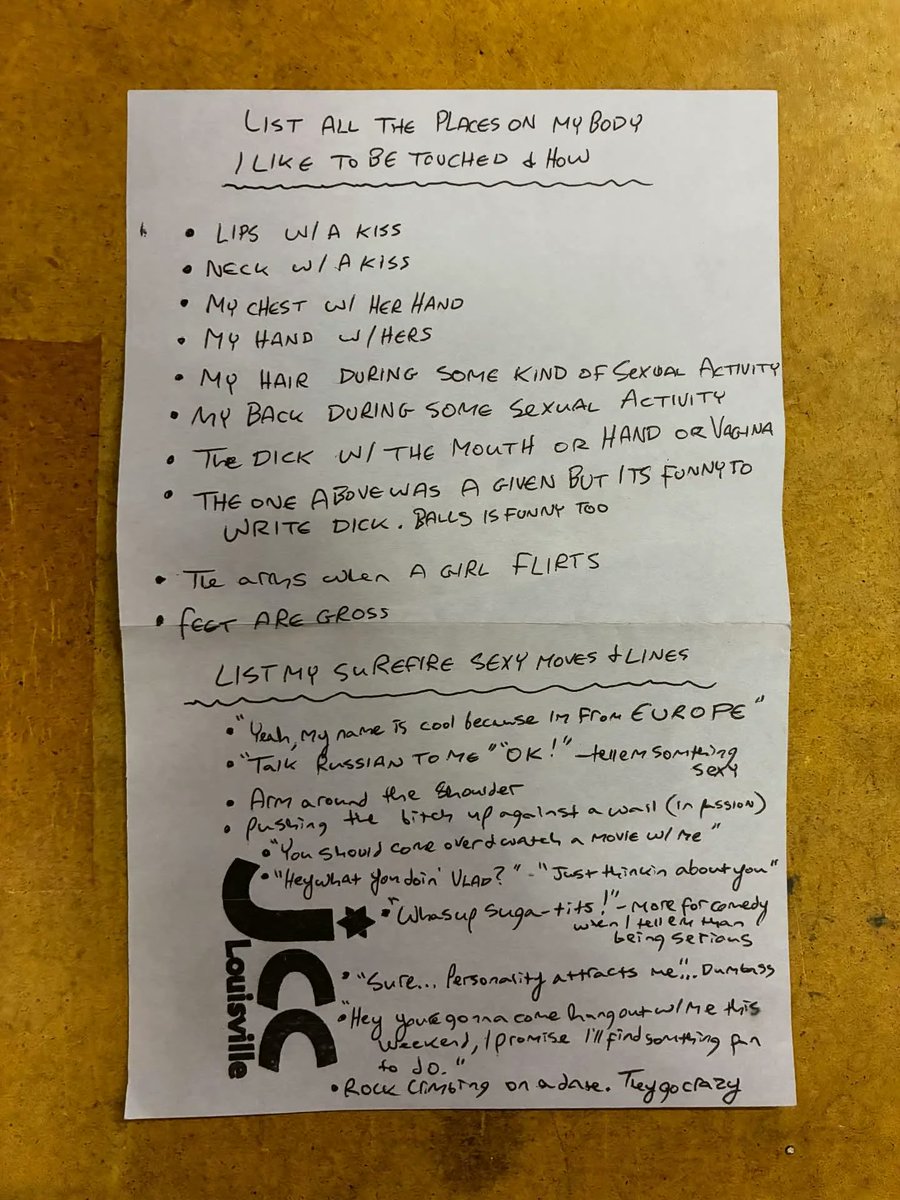 LIST ALL THE PLACES ON MY BODY
I LIKE TO BE TOUCHED & HOW
• LIPS W/ A KISS
• NECK W/ A KISS
• MY CHEST W/ HER HAND
• MY HAND W/ HERS
• MY HAIR DURING SOME KIND OF SEXUAL ACTIVITY
• MY BACK DURING SOME SEXUAL ACTIVITY
• THE DICK W/ THE MOUTH OR HAND OR VAGINA
• THE ONE ABOVE WAS A GIVEN BUT ITS FUNNY TO
WRITE DICK. BALLS IS FUNNY TOO
• The arms when A GIRL FLIRTS
• FEET ARE GROSS
LIST MY SUREFIRE SEXY MOVES & LINES
• "Yeah, my name is cool because Im from EUROPE"
• "Talk RUSSIAN TO ME" "OK!" - tell em something
sexy
• Arm around the shoulder
• pushing the bitch up against a wall (in passion)
• "You should come over & watch a movie w/ me"
• "Hey what you doin' VLAD?" - "Just thinkin about you"
• "Whasup suga-tits!" - More for comedy
when I tell em than
being serious
• "Sure... Personality attracts me"... Dumbass
• "Hey you're gonna come hang out w/ me this
weekend, I promise I'll find something fun
to do."
• Rock Climbing on a date. They go crazy
JCC
Louisville